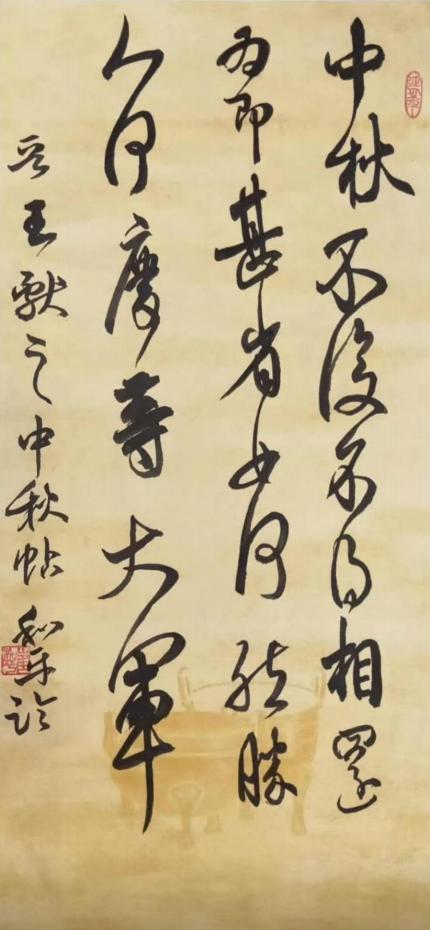 中秋不復不得相還
為即甚省如何然勝
人何慶等大軍
晋王獻之中秋帖 和平臨